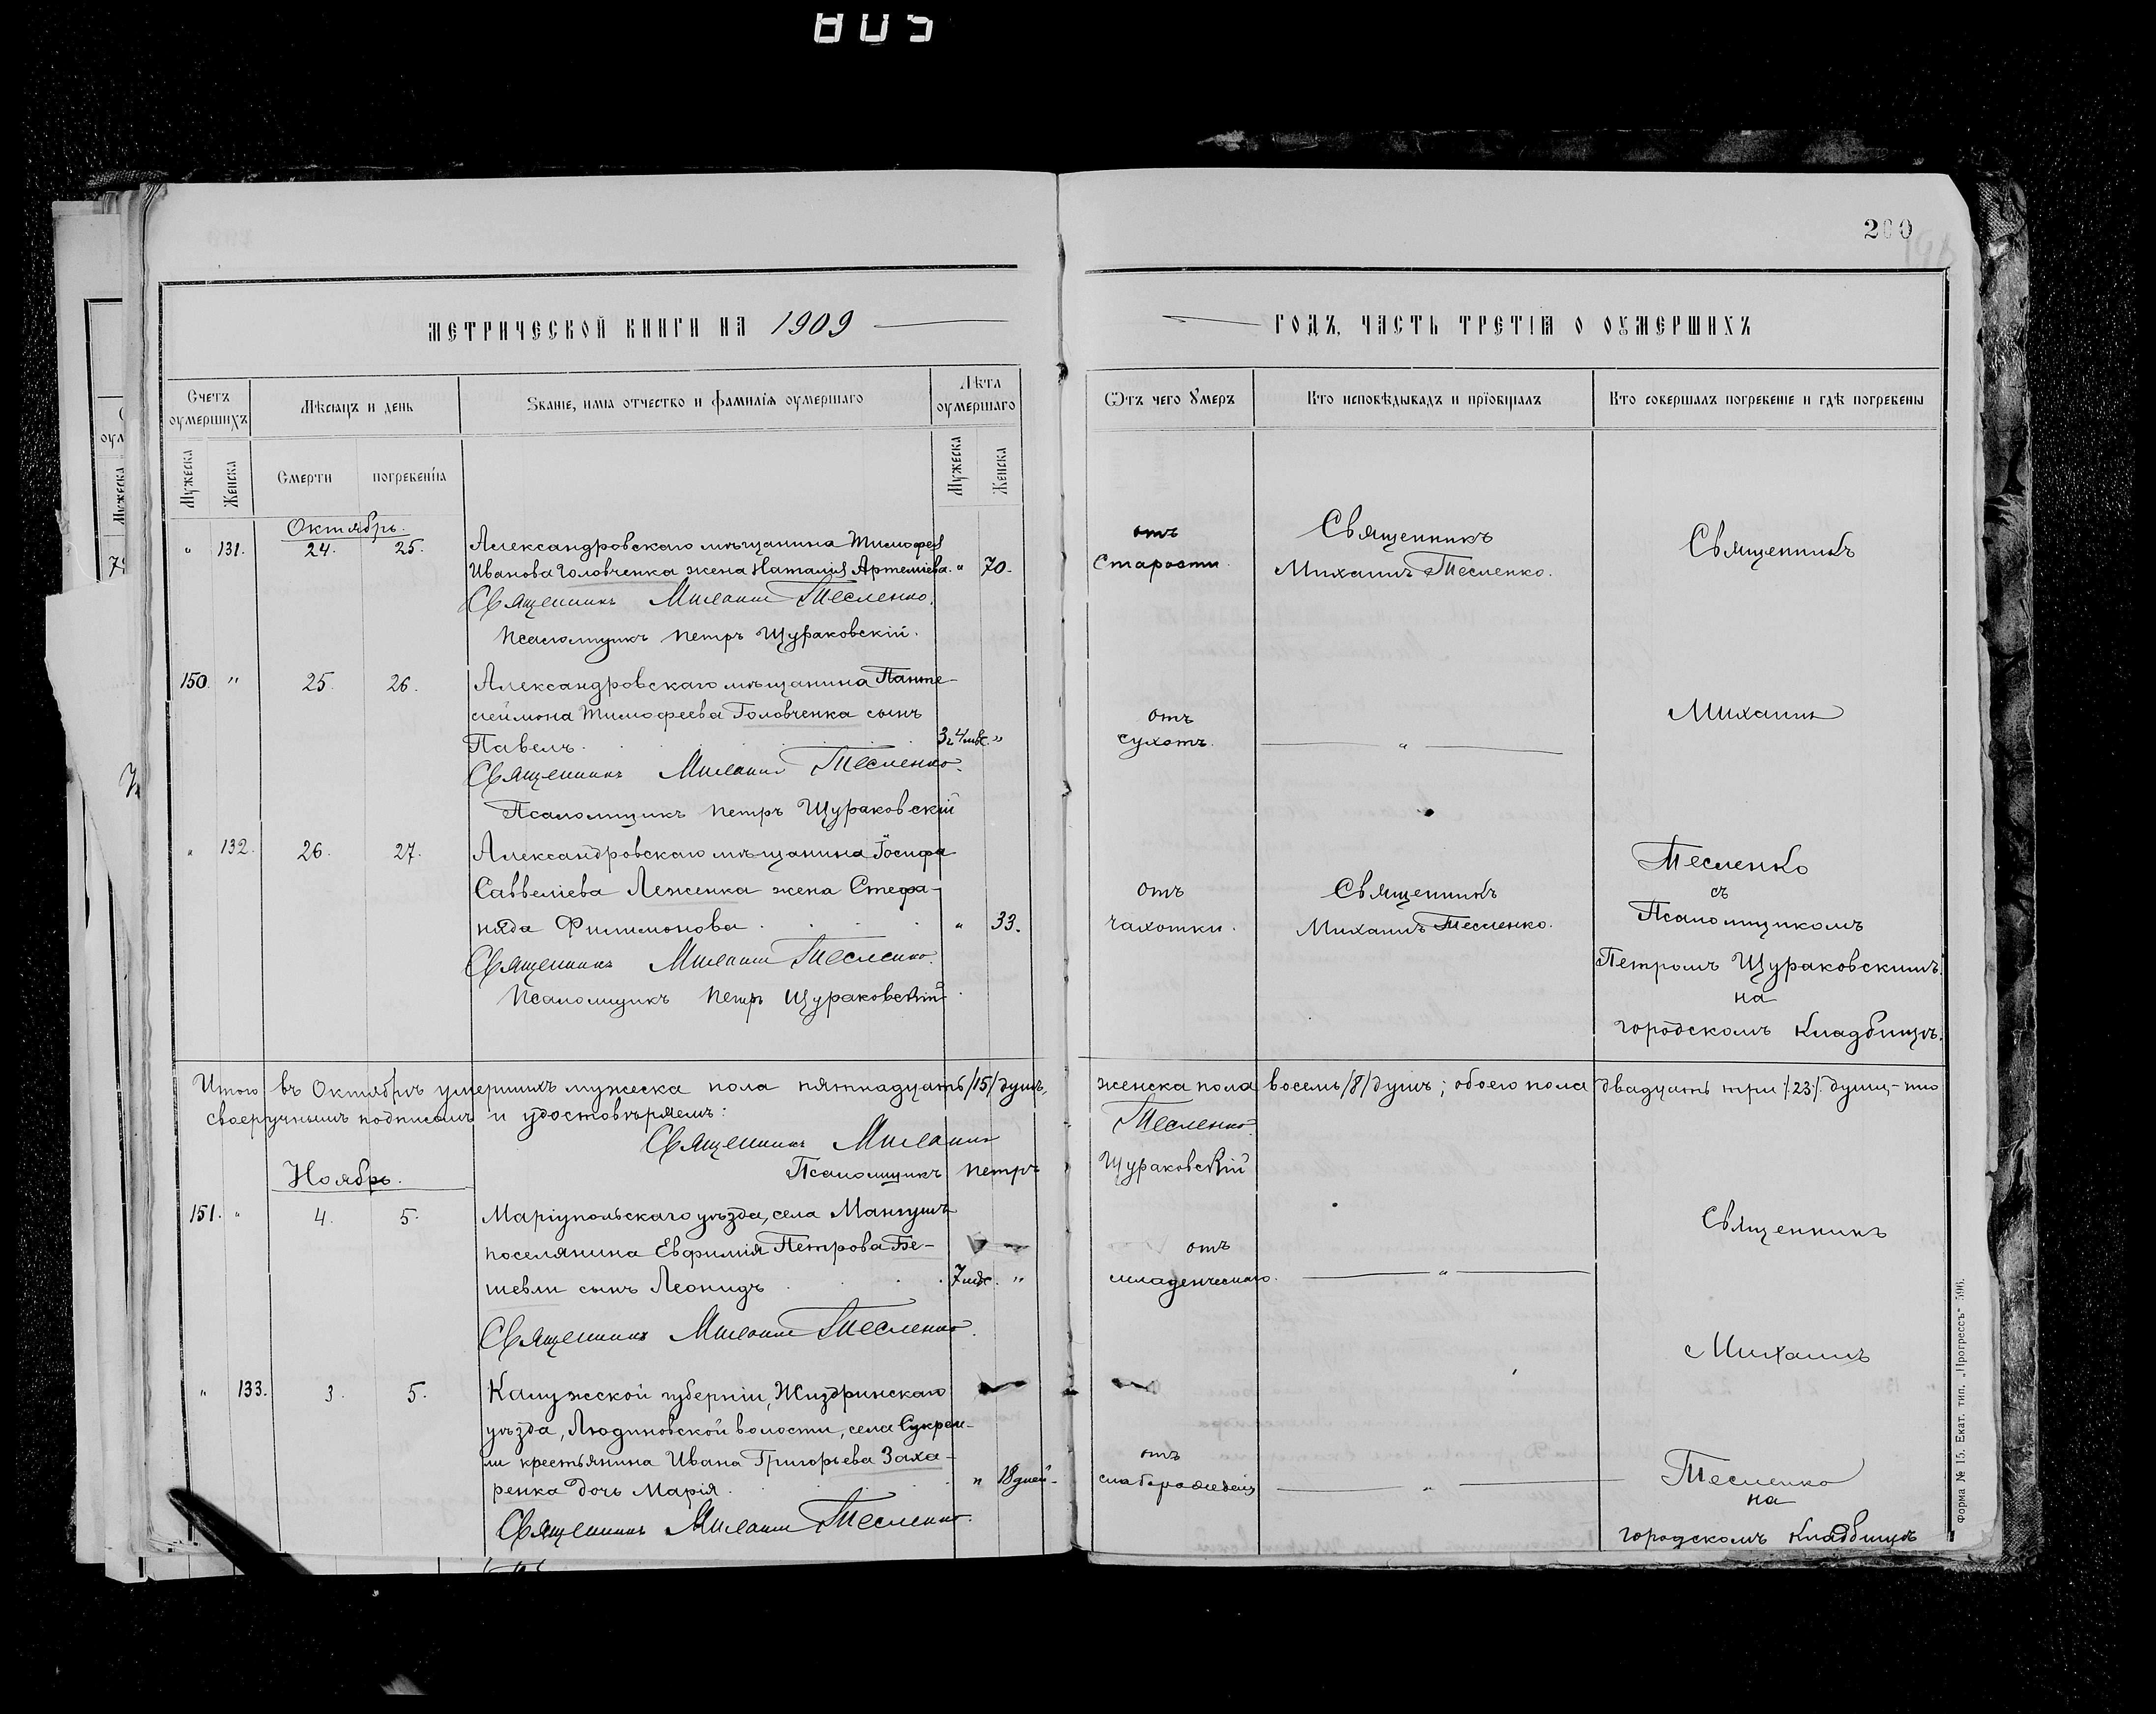 805
200
МЕТРИЧЕСКОЙ КНИГИ НА 1909
ГОДЪ, ЧАСТЬ ТРЕТІЯ О ОУМЕРШИХЪ
Счетъ оумершихъ
Мѣсяцъ и день
Званіе, имя отчество и фамилія оумершаго
Лѣта оумершаго
Ѿтъ чего Ꙋмеръ
Кто исповѣдывалъ и прїобщалъ
Кто совершалъ погребеніе и гдѣ погребены
Мужеска
Женска
Смерти
погребенія
Мужеска
Женска
Октябрь.
" 131. 24. 25. Александровскаго мѣщанина Тимофея
Иванова Головченка жена Наталія Артеміева. " 70.
отъ
Старости.
Священникъ
Михаилъ Тесленко.
Священникъ
Священникъ Михаилъ Тесленко.
Псаломщикъ Петръ Щураковскій.
150. " 25. 26. Александровскаго мѣщанина Панте-
леймона Тимофеева Головченка сынъ
Павелъ. 3 г. 4 мѣс. "
отъ
сухотъ.
"
Михаилъ
Священникъ Михаилъ Тесленко.
Псаломщикъ Петръ Щураковскій
" 132. 26. 27. Александровскаго мѣщанина Іосифа
Саввеліева Леженка жена Стефа-
нида Филимонова. " 33.
отъ
чахотки.
Священникъ
Михаилъ Тесленко.
Тесленко
съ
Псаломщикомъ
Петромъ Щураковскимъ
на
городскомъ кладбищѣ.
Священникъ Михаилъ Тесленко.
Псаломщикъ Петръ Щураковскій.
Итого въ Октябрѣ умершихъ мужеска пола пятнадцать /15/ душъ, женска пола восемь /8/ душъ; обоего пола двадцать три /23/ души,- что
своеручнымъ подписомъ и удостовѣряемъ:
Священникъ Михаилъ Тесленко.
Псаломщикъ Петръ Щураковскій
Ноябрь.
151. " 4. 5. Маріупольскаго уѣзда, села Мангушъ
поселянина Евфимія Петрова Бе-
шевли сынъ Леонидъ. 7 мѣс. "
отъ
младенческаго.
"
Священникъ
Михаилъ
Священникъ Михаилъ Тесленко.
" 133. 3. 5. Калужской губерніи, Жиздринскаго
уѣзда, Людиновской волости, села Сукрем-
ли крестьянина Ивана Григорьева Заха-
ренка дочь Марія. " 18 дней.
отъ
слаборожденія
"
Тесленко
на
городскомъ кладбищѣ
Священникъ Михаилъ Тесленко.
Форма № 15. Екат. тип. „Прогрессъ" 596.